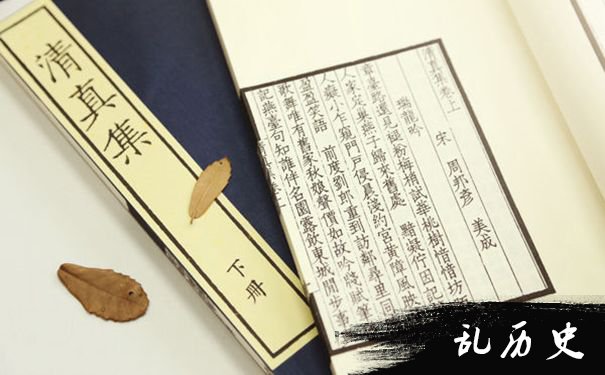 清真集
下冊
清真集卷上
宋 周邦彥 美成
瑞龍吟
章臺路還見褪粉梅梢試華桃樹愔愔坊
人家定巢燕子歸來舊處 黯凝佇因記
人癡小乍窺門戶侵晨淺約宮黃障風映
盈盈笑語 前度劉郎重到訪鄰尋里同
歌舞唯有舊家秋娘聲價如故吟牋賦筆
記燕臺句知誰伴名園露飲東城閒步
乱历史